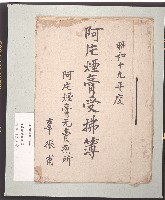 昭和十九年度
阿片煙膏受拂簿
阿片煙膏元賣捌所
辜振甫